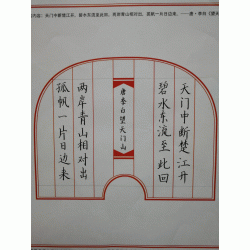 天门中断楚江开，碧水东流至此回。两岸青山相对出，孤帆一片日边来。——唐·李白《望天
天门中断楚江开
碧水东流至此回
唐李白望天门山
两岸青山相对出
孤帆一片日边来